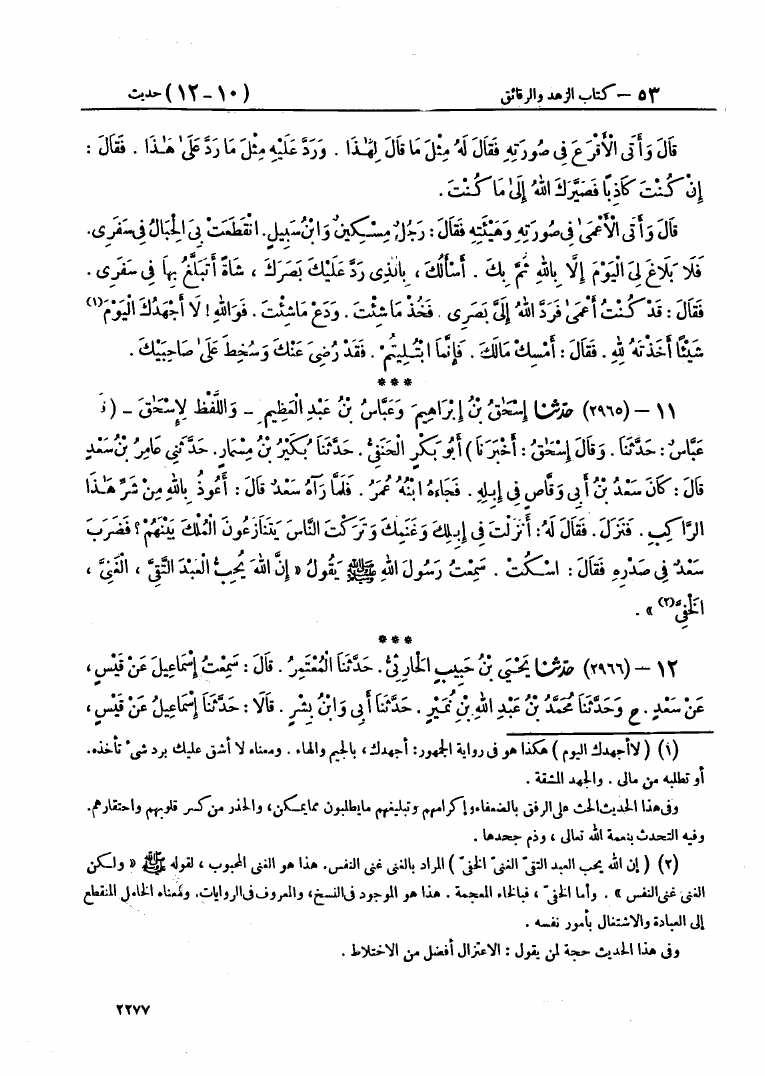 ٥٣ – كتاب الزهد والرقائق (١٠-١٢) حديث
قَالَ وَأَتَى الْأَقْرَعَ فِى صُورَتِهِ فَقَالَ لَهُ مِثْلَ مَا قَالَ لِهَٰذَا . وَرَدَّ عَلَيْهِ مِثْلَ مَا رَدَّ عَلَىٰ هَٰذَا . فَقَالَ :
إِنْ كُنْتَ كَاذِبًا فَصَيَّرَكَ اللهُ إِلَىٰ مَا كُنْتَ .
قَالَ وَأَتَى الْأَعْمَىٰ فِى صُورَتِهِ وَهَيْئَتِهِ فَقَالَ : رَجُلٌ مِسْكِينٌ وَابْنُ سَبِيلٍ . انْقَطَعَتْ بِىَ الْحِبَالُ فِى سَفَرِى .
فَلَا بَلَاغَ لِىَ الْيَوْمَ إِلَّا بِاللهِ ثُمَّ بِكَ . أَسْأَلُكَ ، بِالَّذِى رَدَّ عَلَيْكَ بَصَرَكَ ، شَاةً أَتَبَلَّغُ بِهَا فِى سَفَرِى .
فَقَالَ : قَدْ كُنْتُ أَعْمَىٰ فَرَدَّ اللهُ إِلَىَّ بَصَرِى . فَخُذْ مَا شِئْتَ . وَدَعْ مَا شِئْتَ . فَوَاللهِ ! لَا أَجْهَدُكَ الْيَوْمَ (١)
شَيْئًا أَخَذْتَهُ لِلهِ . فَقَالَ : أَمْسِكْ مَالَكَ . فَإِنَّمَا ابْتُلِيتُمْ . فَقَدْ رُضِىَ عَنْكَ وَسُخِطَ عَلَىٰ صَاحِبَيْكَ .
***
١١ – (٢٩٦٥) حَدَّثَنَا إِسْحَٰقُ بْنُ إِبْرَاهِيمَ وَعَبَّاسُ بْنُ عَبْدِ الْعَظِيمِ – وَاللَّفْظُ لِإِسْحَٰقَ – (
عَبَّاسٌ : حَدَّثَنَا . وَقَالَ إِسْحَٰقُ : أَخْبَرَنَا ) أَبُو بَكْرٍ الْحَنَفِىُّ . حَدَّثَنَا بُكَيْرُ بْنُ مِسْمَارٍ . حَدَّثَنِى عَامِرُ بْنُ سَعْدٍ
قَالَ : كَانَ سَعْدُ بْنُ أَبِى وَقَّاصٍ فِى إِبِلِهِ . فَجَاءَهُ ابْنُهُ عُمَرُ . فَلَمَّا رَآهُ سَعْدٌ قَالَ : أَعُوذُ بِاللهِ مِنْ شَرِّ هَٰذَا
الرَّاكِبِ . فَنَزَلَ . فَقَالَ لَهُ : أَنَزَلْتَ فِى إِبِلِكَ وَغَنَمِكَ وَتَرَكْتَ النَّاسَ يَتَنَازَعُونَ الْمُلْكَ بَيْنَهُمْ ؟ فَضَرَبَ
سَعْدٌ فِى صَدْرِهِ فَقَالَ : اسْكُتْ . سَمِعْتُ رَسُولَ اللهِ ﷺ يَقُولُ « إِنَّ اللهَ يُحِبُّ الْعَبْدَ التَّقِىَّ ، الْغَنِىَّ ،
الْخَفِىَّ (٢) » .
***
١٢ – (٢٩٦٦) حَدَّثَنَا يَحْيَىٰ بْنُ حَبِيبٍ الْحَارِثِىُّ . حَدَّثَنَا الْمُعْتَمِرُ . قَالَ : سَمِعْتُ إِسْمَاعِيلَ عَنْ قَيْسٍ ،
عَنْ سَعْدٍ . ح وَحَدَّثَنَا مُحَمَّدُ بْنُ عَبْدِ اللهِ بْنِ نُمَيْرٍ . حَدَّثَنَا أَبِى وَابْنُ بِشْرٍ . قَالَا : حَدَّثَنَا إِسْمَاعِيلُ عَنْ قَيْسٍ ،
(١) ( لا أجهدك اليوم ) هكذا هو فى رواية الجمهور : أجهدك ، بالجيم والهاء . ومعناه لا أشق عليك برد شىء تأخذه .
أو تطلبه من مالى . والجهد المشقة .
وفى هذا الحديث الحث على الرفق بالضعفاء وإكرامهم وتبليغهم ما يطلبون مما يمكن ، والحذر من كسر قلوبهم واحتقارهم .
وفيه التحدث بنعمة الله تعالى ، وذم جحدها .
(٢) ( إن الله يحب العبد التقىّ الغنىّ الخفىّ ) المراد بالغنى غنى النفس . هذا هو الغنى المحبوب ، لقوله ﷺ « ولكن
الغنى غنى النفس » . وأما الخفىّ ، فبالخاء المعجمة . هذا هو الموجود فى النسخ ، والمعروف فى الروايات . ومعناه الخامل المنقطع
إلى العبادة والاشتغال بأمور نفسه .
وفى هذا الحديث حجة لمن يقول : الاعتزال أفضل من الاختلاط .
٢٢٧٧